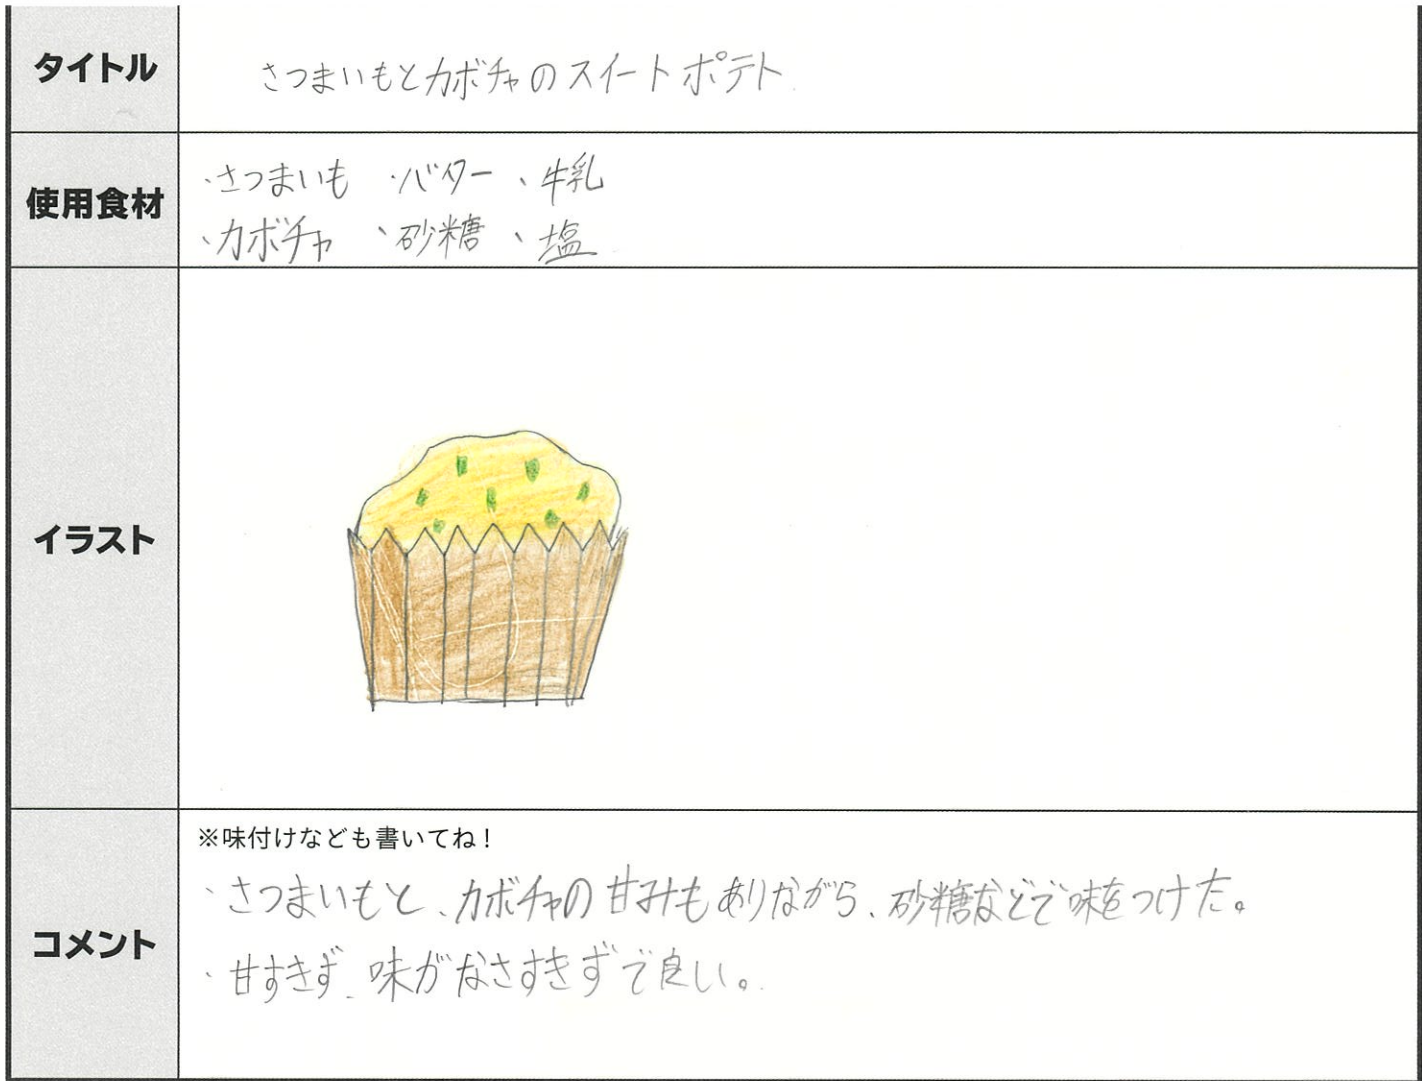 タイトル
さつまいもとカボチャのスイートポテト
使用食材
・さつまいも ・バター 、牛乳
、カボチャ 、砂糖 、塩
イラスト
コメント
※味付けなども書いてね！
・さつまいもと、カボチャの甘みもありながら、砂糖などで味をつけた。
・甘すきず、味がなさすきずで良い。